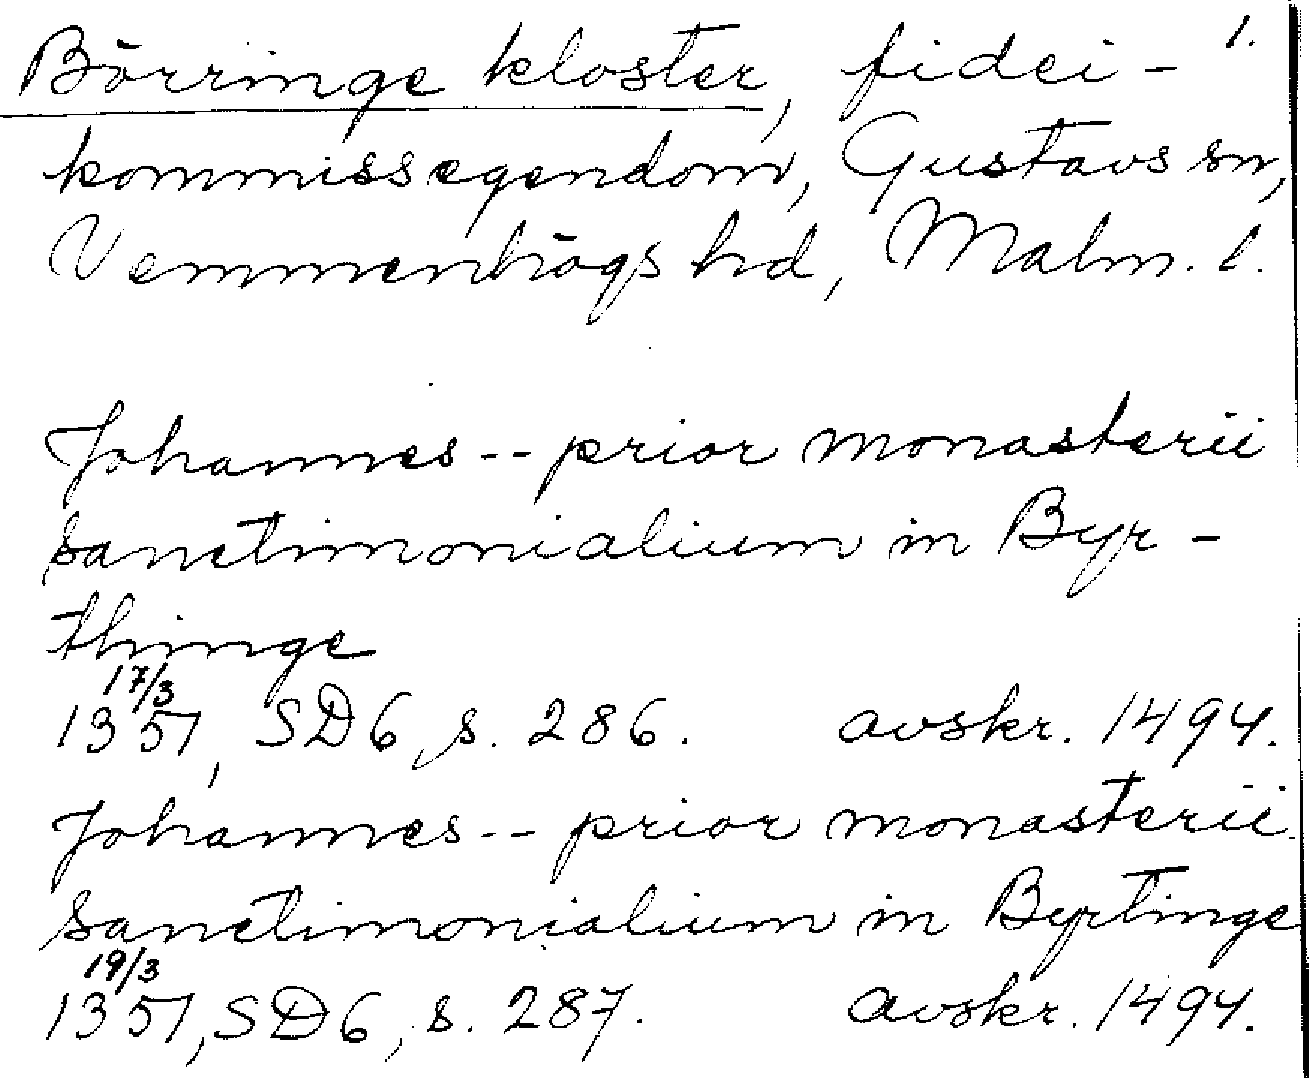 1.
Börringe kloster, fidei-
kommissegendom, Gustavs sn,
Vemmenhögs hd, Malm. l.
Johannes -- prior monasterii
sanctimonialium in Byr-
thinge
17/3
1351, SD 6, s. 286. avskr. 1494.
Johannes -- prior monasterii
sanctimonialium in Byrtinge
19/3
1351, SD 6, s. 287. avskr. 1494.